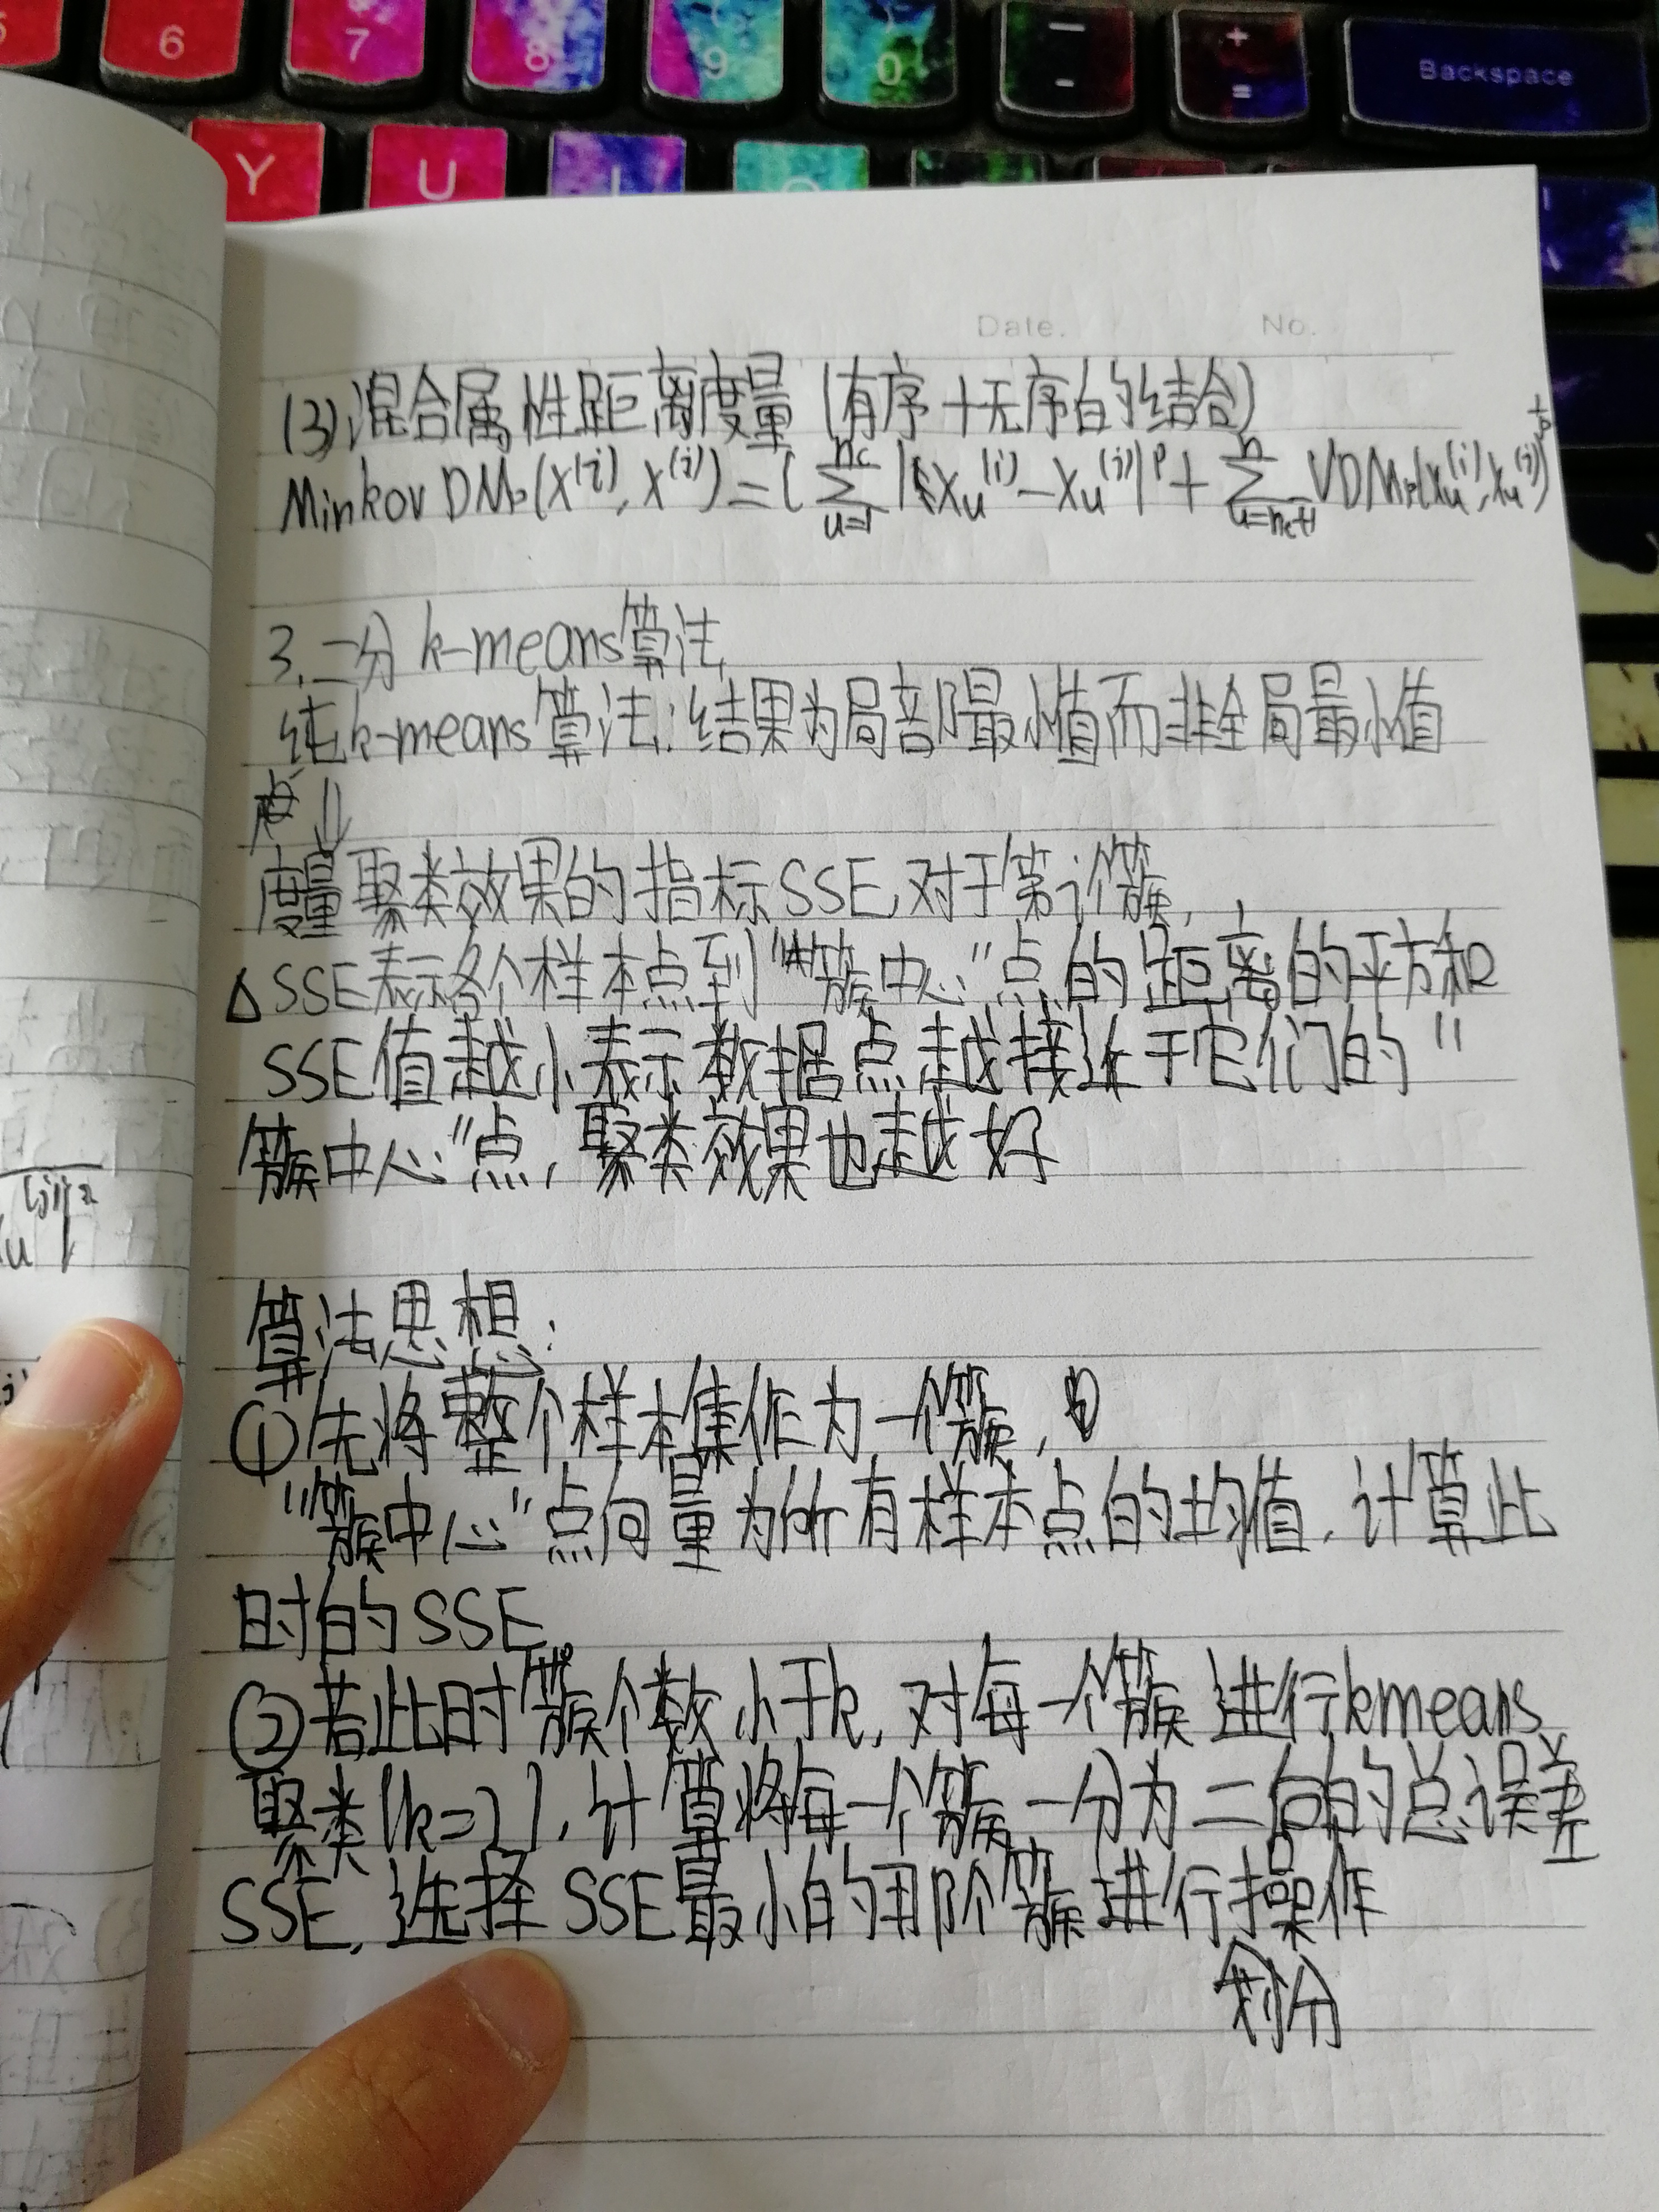 6 7 8 9 0 - + = Backspace
Y U I O
Date. No.
(3).混合属性距离度量(有序+无序的结合)
MinkovDMp(x^(i), x^(j)) = (∑_{u=1}^{nc} |x_u^(i) - x_u^(j)|^p + ∑_{u=nc+1}^{n} VDMp(x_u^(i), x_u^(j)))^{1/p}
3.二分k-means算法
纯k-means算法:结果为局部最小值而非全局最小值
点⇓
度量聚类效果的指标SSE,对于第i个簇,
△SSE表示各个样本点到"簇中心"点的距离的平方和
SSE值越小表示数据点越接近于它们的"
簇中心"点,聚类效果也越好
算法思想:
①先将整个样本集作为一个簇,
"簇中心"点向量为所有样本点的均值,计算此
时的SSE。
②若此时簇个数小于k,对每一个簇进行kmeans
聚类(k=2),计算将每一个簇一分为二后的总误差
SSE,选择SSE最小的那个簇进行操作
划分